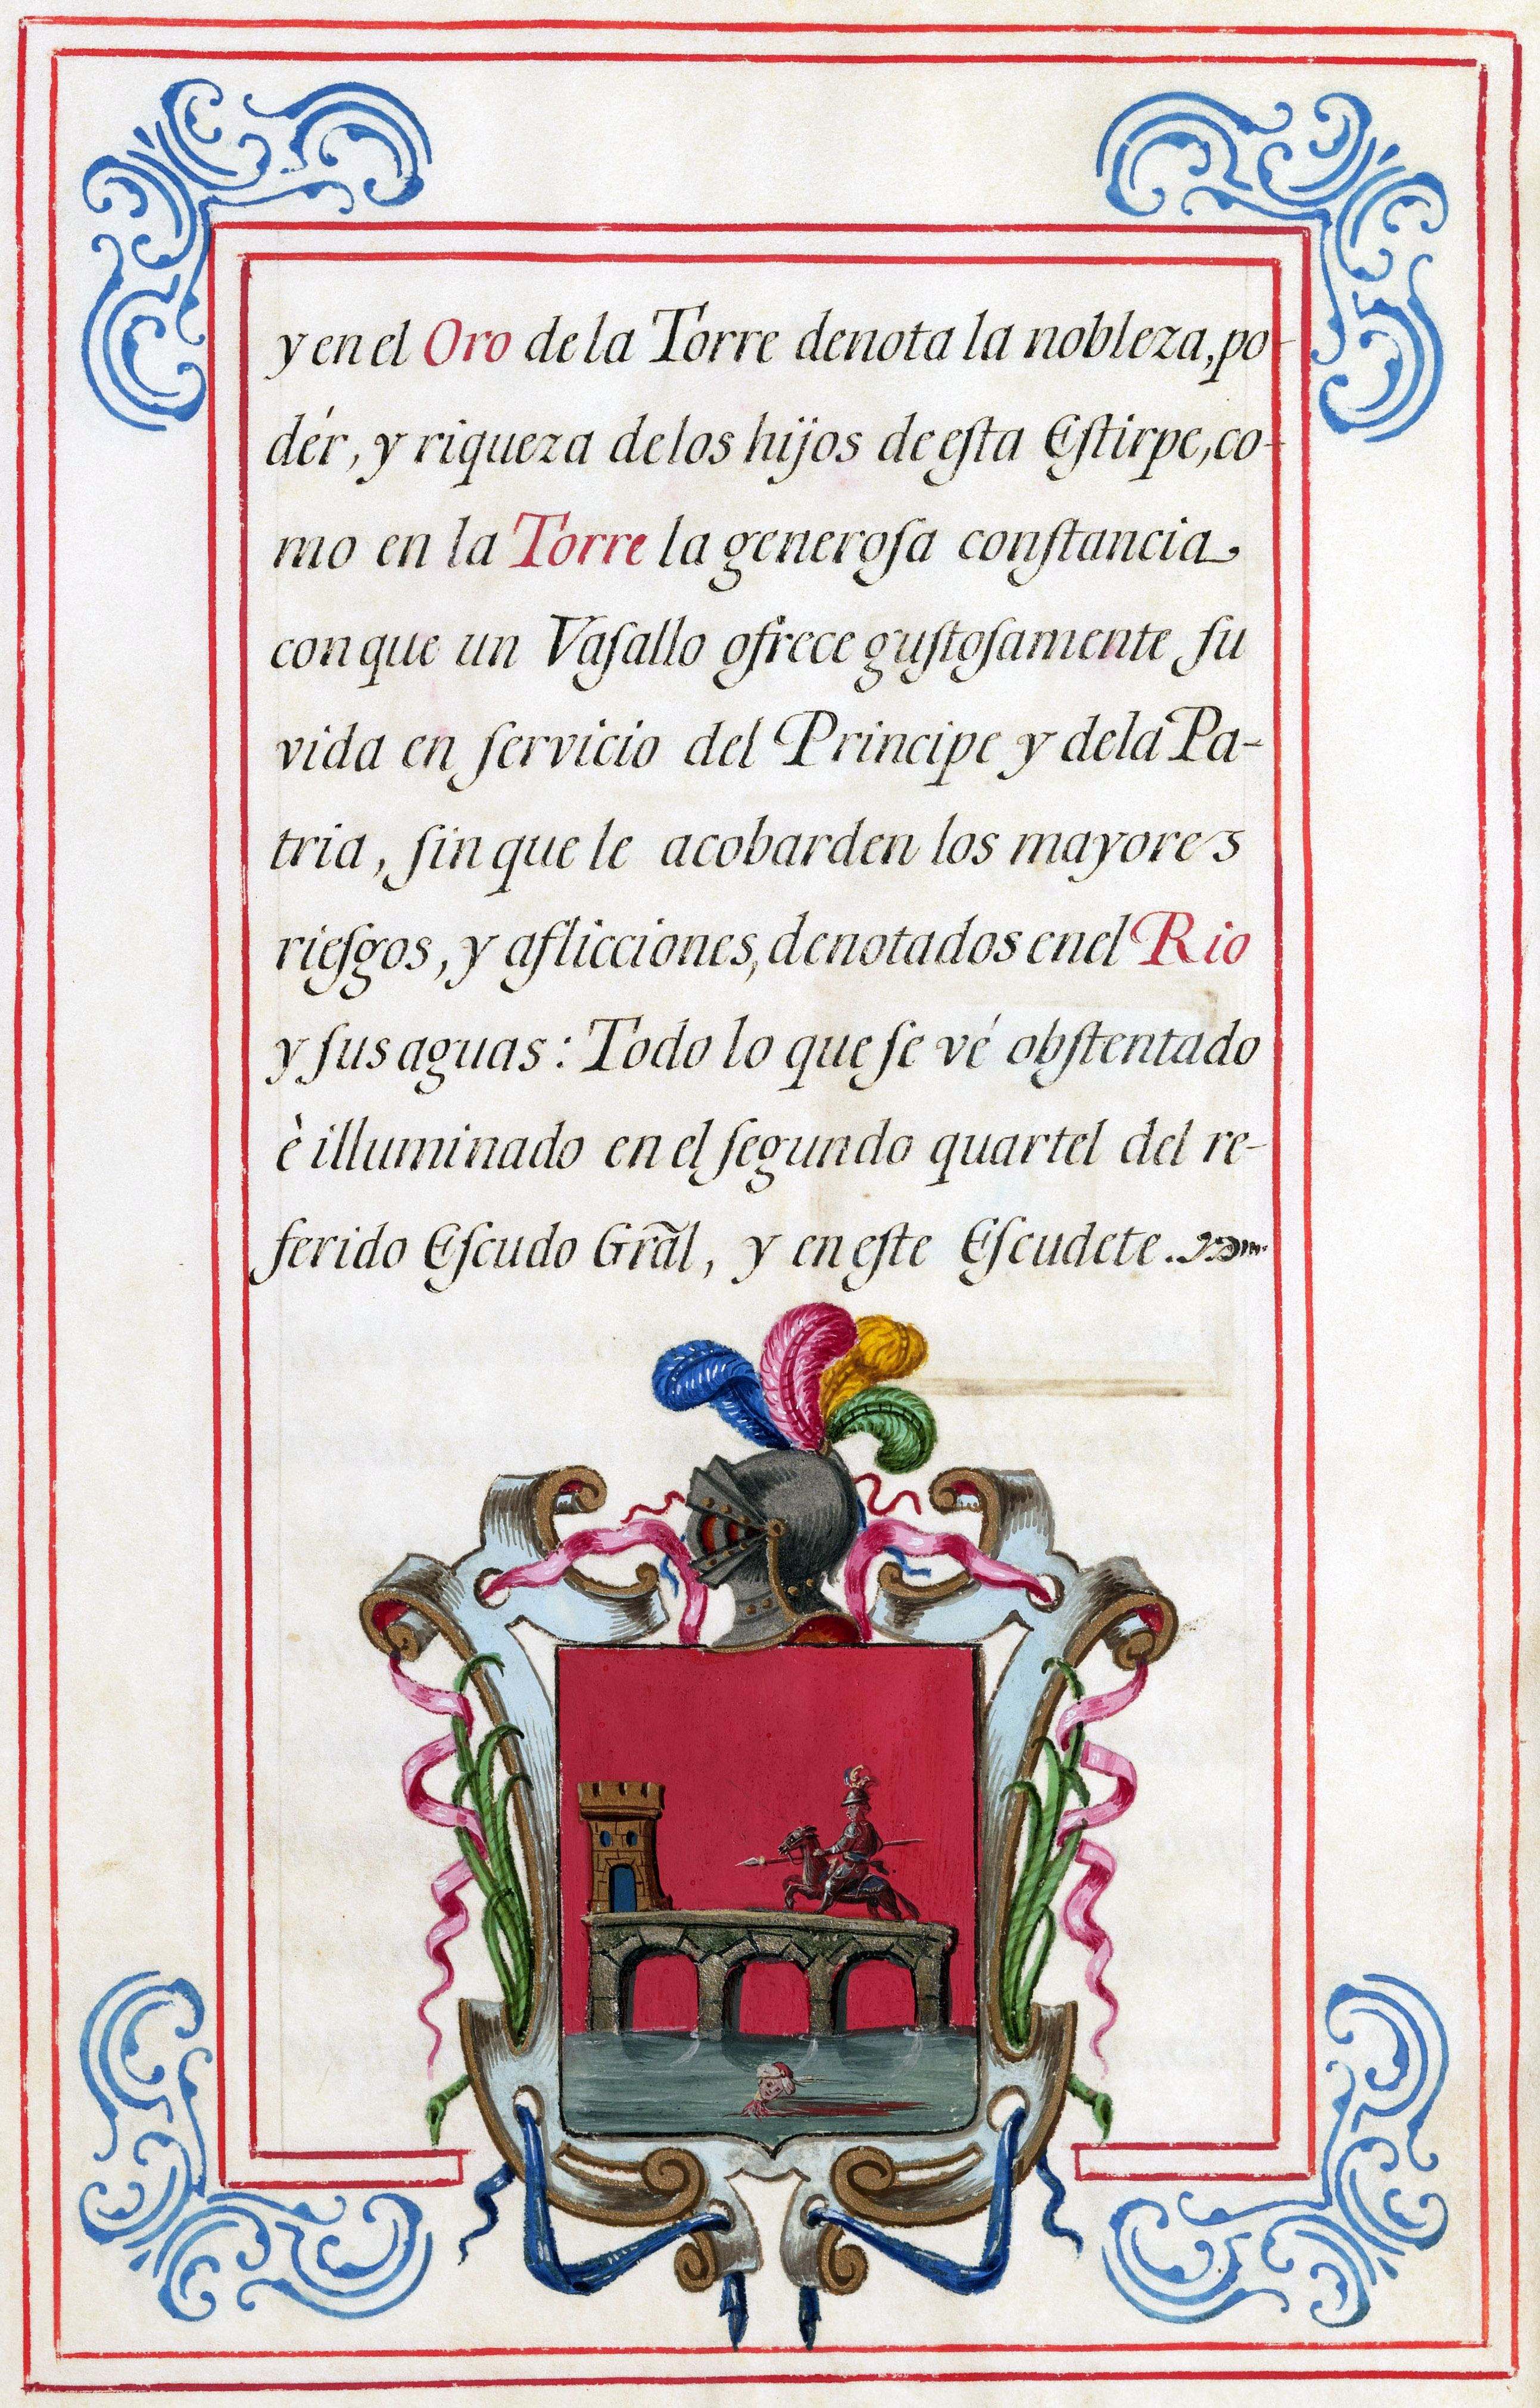 y en el Oro de la Torre denota la nobleza, po-
dér, y riqueza de los hijos de eſta Eſtirpe, co-
mo en la Torre la generoſa conſtancia
con que un Vaſallo ofrece guſtoſamente ſu
vida en ſervicio del Principe y dela Pa-
tria, ſin que le acobarden los mayores
rieſgos, y aflicciones, denotados en el Rio
y ſus aguas: Todo lo que ſe vé obſtentado
è illuminado en el ſegundo quartel del re-
ferido Eſcudo Grãl, y en eſte Eſcudete.